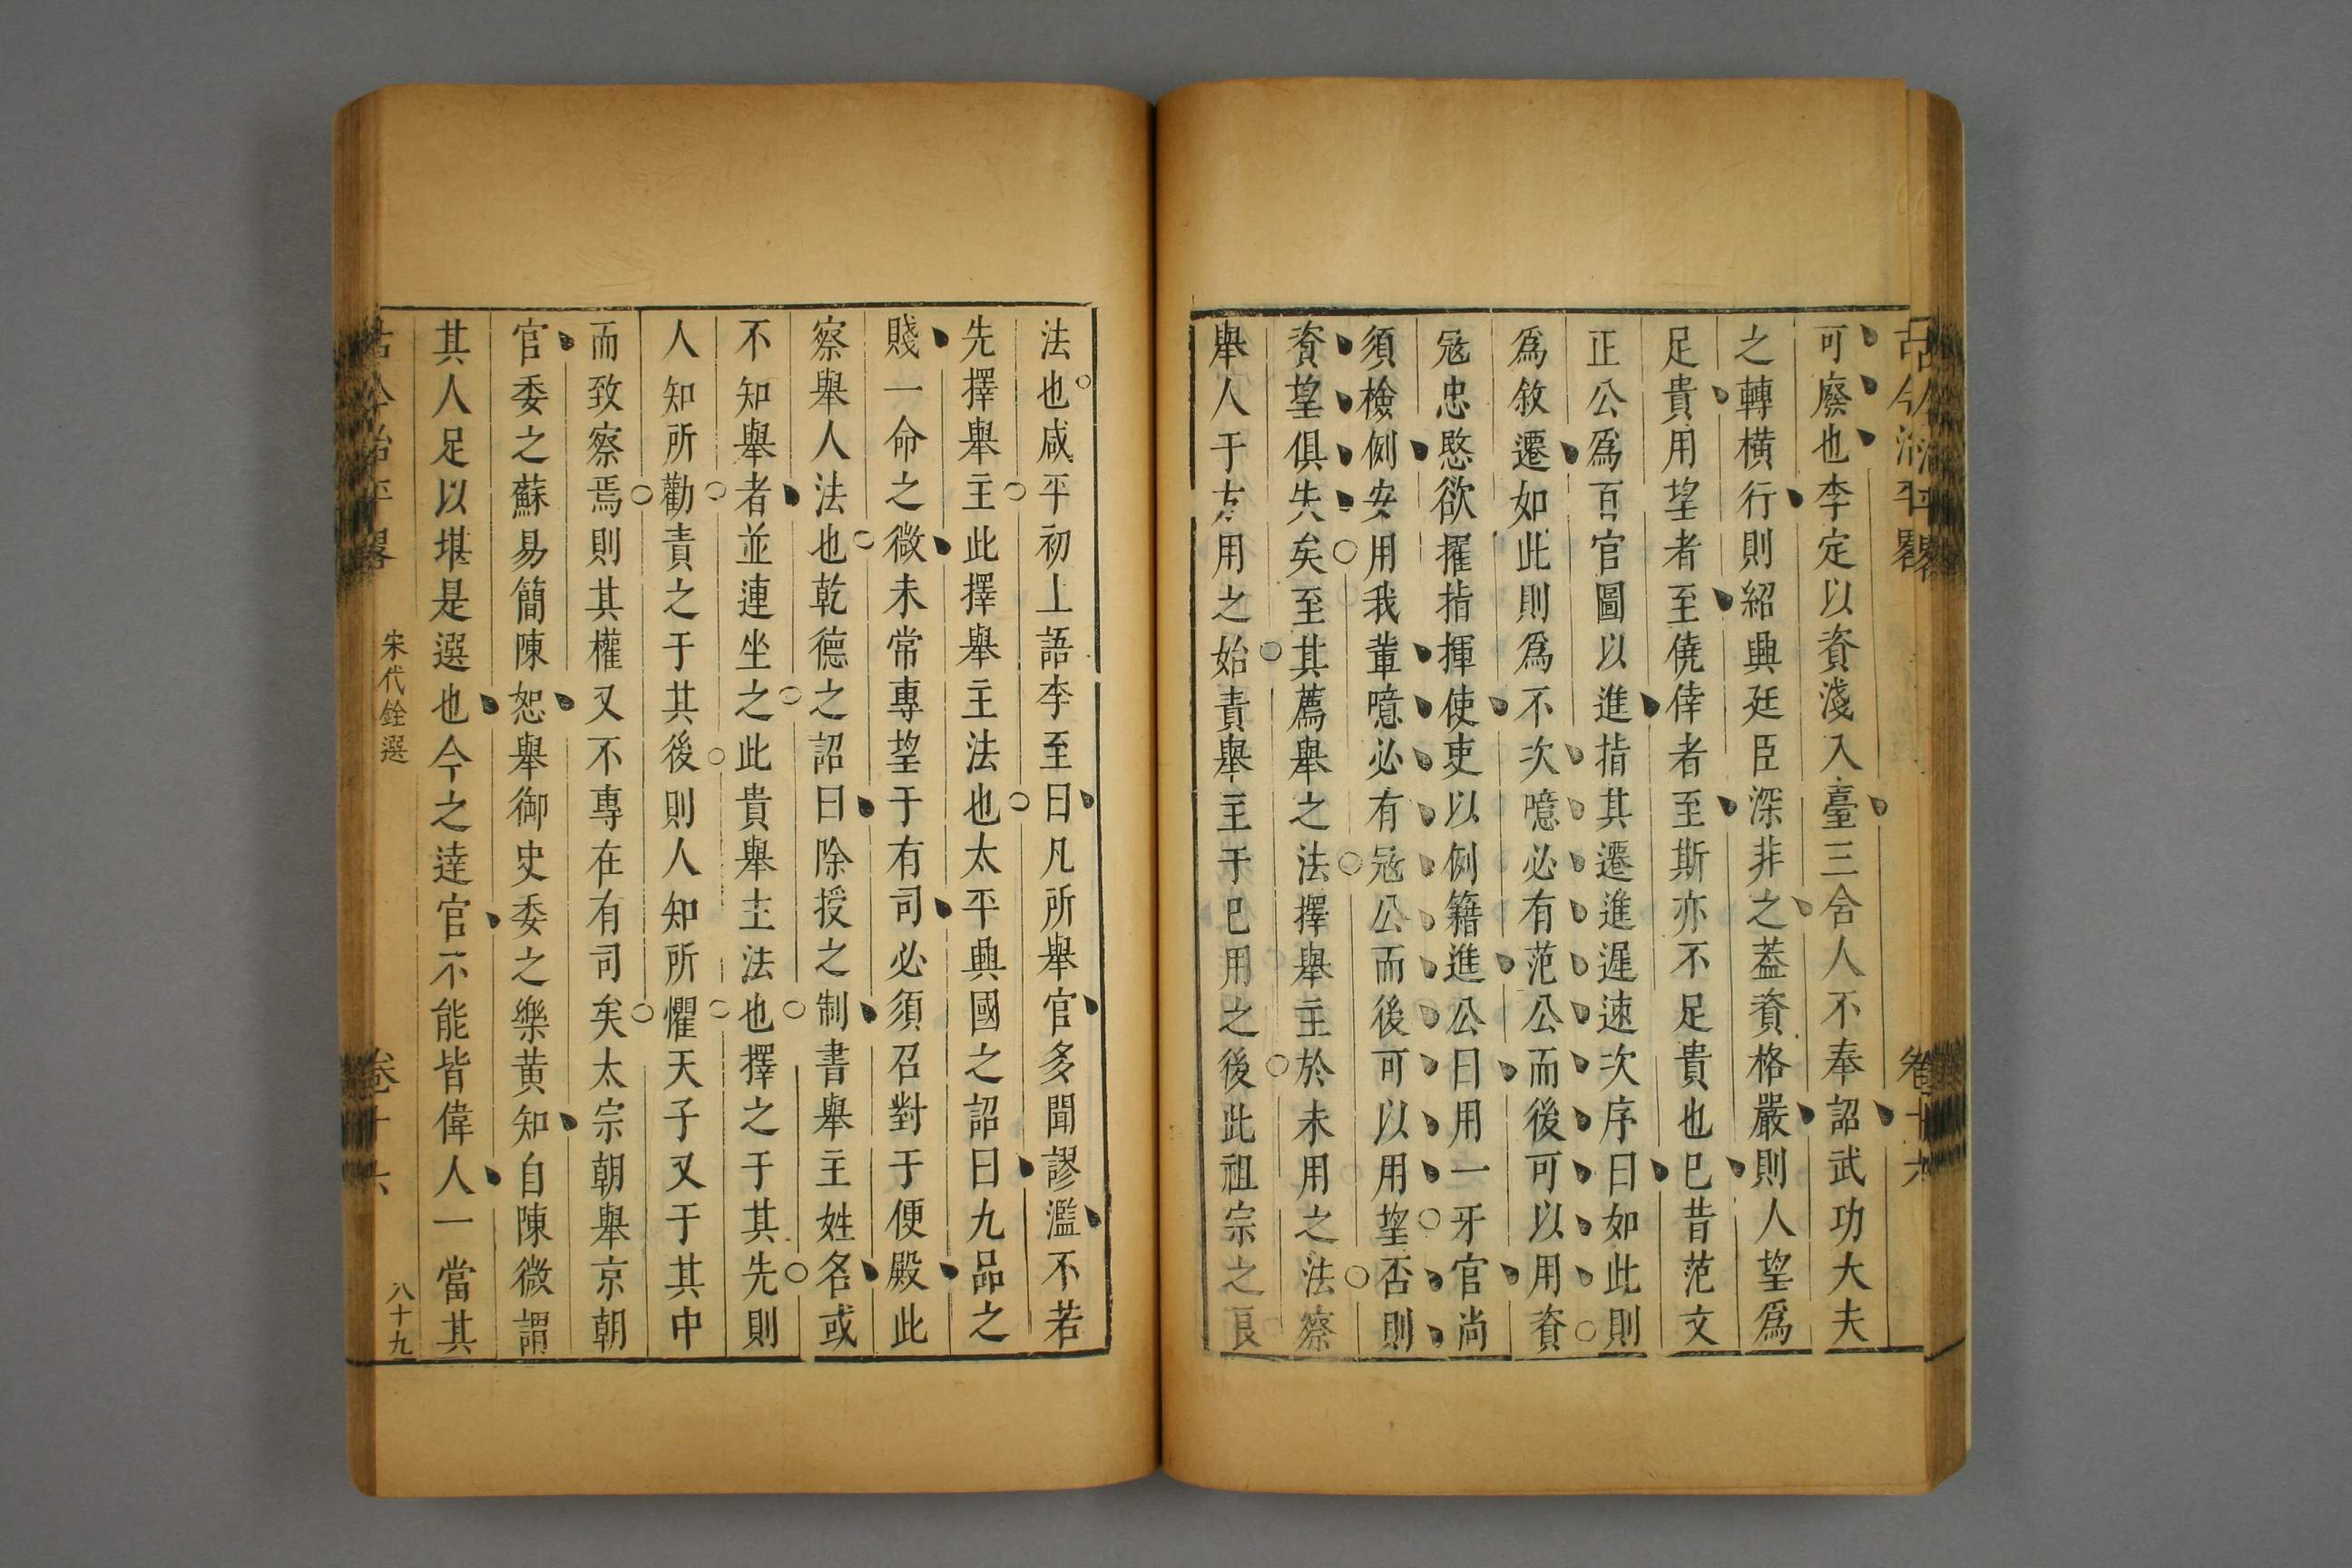 古今治平畧 卷十六
可廢也李定以資淺入臺三舍人不奉詔武功大夫
之轉橫行則紹興廷臣深非之蓋資格嚴則人望爲
足貴用望者至僥倖者至斯亦不足貴也已昔范文
正公爲百官圖以進指其遷進遲速次序曰如此則
爲敘遷如此則爲不次噫必有范公而後可以用資
冦忠愍欲擢指揮使吏以例籍進公曰用一牙官尚
須檢例安用我輩噫必有冦公而後可以用望否則
資望俱失矣至其薦舉之法擇舉主於未用之法察
舉人于方用之始責舉主于已用之後此祖宗之良
法也咸平初上語李至曰凡所舉官多聞謬濫不若
先擇舉主此擇舉主法也太平興國之詔曰九品之
賤一命之微未常專望于有司必須召對于便殿此
察舉人法也乾德之詔曰除授之制書舉主姓名或
不知舉者並連坐之此責舉主法也擇之于其先則
人知所勸責之于其後則人知所懼天子又于其中
而致察焉則其權又不專在有司矣太宗朝舉京朝
官委之蘇易簡陳恕舉御史委之樂黄知自陳微謂
其人足以堪是選也今之達官不能皆偉人一當其
古今治平畧 宋代銓選 卷十六 八十九